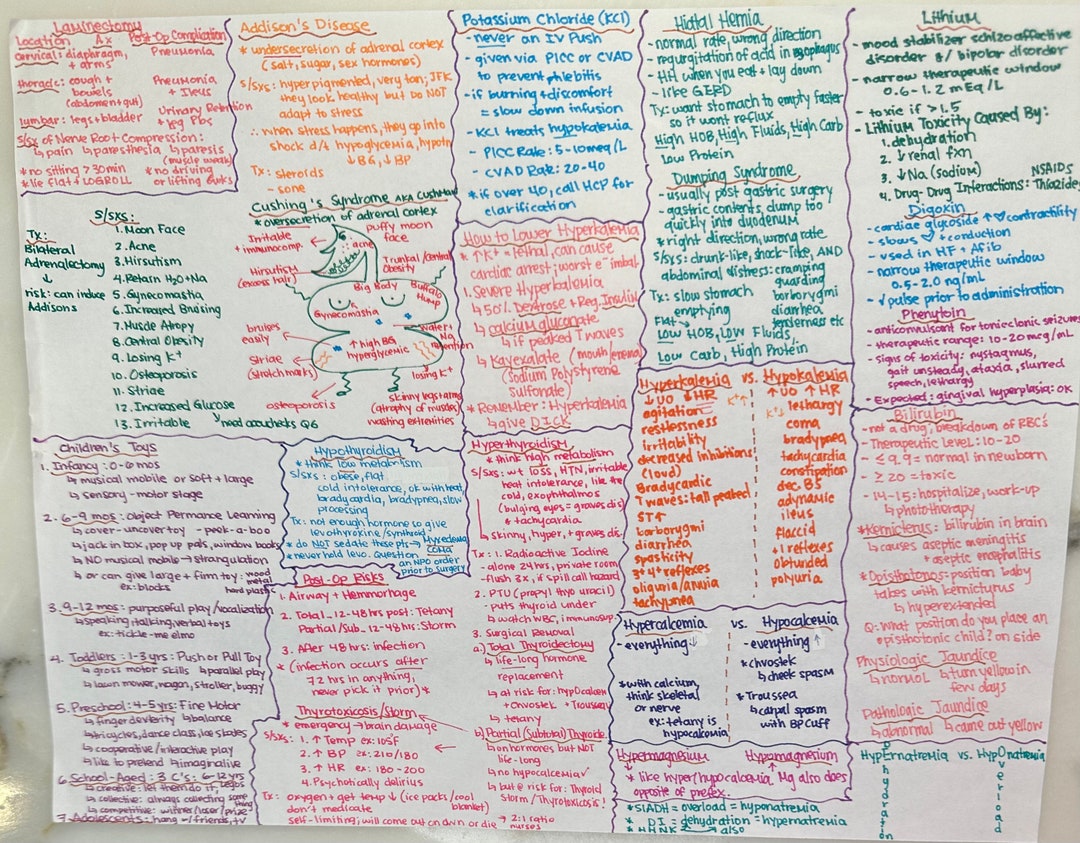 Laminectomy
Location Ax Post-Op Complication
Cervical: diaphragm, Pneumonia
+ arms
thoracic: cough + Pneumonia
bowels + Ileus
(abdomen + gut)
lumbar: legs + bladder Urinary Retention
+ leg Pbs
S/sx of Nerve Root Compression:
↳ pain ↳ paresthesia ↳ paresis
(muscle weak)
*no sitting >30min *no driving
*lie flat + LOGROLL or lifting 5lbs
Addison's Disease
* undersecretion of adrenal cortex
(salt, sugar, sex hormones)
S/Sxs: hyperpigmented, very tan; JFK
they look healthy but do NOT
adapt to stress
∴ when stress happens, they go into
shock d/t hypoglycemia, hypotn
↓BG, ↓BP
Tx: steroids
- sone
Potassium Chloride (KCl)
- never an IV Push
- given via PICC or CVAD
to prevent phlebitis
- if burning + discomfort
= slow down infusion
- KCl treats hypokalemia
- PICC Rate: 5-10meq/L
- CVAD Rate: 20-40
*if over 40, call HCP for
clarification
Hiatal Hernia
- normal rate, wrong direction
- regurgitation of acid in esophagus
- HH when you eat + lay down
- like GERD
Tx: want stomach to empty faster
so it wont reflux
High HOB, High Fluids, High Carb
Low Protein
Dumping Syndrome
- usually post gastric surgery
- gastric contents dump too
quickly into duodenum
*right direction, wrong rate
S/sxs: drunk-like, shock-like, AND
abdominal distress: cramping
guarding
borborygmi
diarrhea
tenderness etc
Tx: slow stomach
emptying
Flat
↳ Low HOB, Low Fluids,
Low Carb, High Protein
Lithium
- mood stabilizer schizoaffective
disorder &/ bipolar disorder
- narrow therapeutic window
0.6-1.2 mEq/L
- toxic if >1.5
- Lithium Toxicity Caused By:
1. dehydration
2. ↓renal fxn
3. ↓Na (sodium)
4. Drug-Drug Interactions: NSAIDS
Thiazides
Digoxin
- cardiac glycoside ↑♡contractility
- slows ♡ conduction
- used in HF + AFib
- narrow therapeutic window
0.5-2.0 ng/mL
- √ pulse prior to administration
Phenytoin
- anticonvulsant for tonicclonic seizures
- therapeutic range: 10-20 mcg/mL
- signs of toxicity: nystagmus,
gait unsteady, ataxia, slurred
speech, lethargy
- Expected: gingival hyperplasia: OK
Bilirubin
- not a drug; breakdown of RBC's
- Therapeutic Level: 10-20
- ≤ 9.9 = normal in newborn
- ≥ 20 = toxic
- 14-15: hospitalize, work-up
↳ phototherapy
*Kernicterus: bilirubin in brain
↳ causes aseptic meningitis
+ aseptic encephalitis
*Opisthotonos: position baby
takes with kernicturus
↳ hyperextended
Q: What position do you place an
episthotonic child? on side
Physiologic Jaundice
↳ normal ↳ turn yellow in
few days
Pathologic Jaundice
↳ abnormal ↳ came out yellow
Tx:
Bilateral
Adrenalectomy
↓
risk: can induce
Addisons
S/sxs:
1. Moon Face
2. Acne
3. Hirsutism
4. Retain H2O+Na
5. Gynecomastia
6. Increased Bruising
7. Muscle Atropy
8. Central Obesity
9. Losing K+
10. Osteoporosis
11. Striae
12. Increased Glucose
↳ need accuchecks Q6
13. Irritable
Cushing's Syndrome AKA Cushman
* oversecretion of adrenal cortex
Irritable
+ immunocomp.
puffy moon
face
acne
Hirsutism
(excess hair)
Trunkal/central
Obesity
Big Body
Buffalo
Hump
Gynecomastia
bruises
easily
water +
Na
retention
↑ high BG
hyperglycemic
Striae
(stretch marks)
losing K+
osteoporosis
skinny legs + arms
(atrophy of muscles)
wasting extremities
How to Lower Hyperkalemia
* ↑K+ = lethal, can cause
cardiac arrest; worst e- imbal
1. Severe Hyperkalemia
↳ 50% Dextrose + Reg. Insulin
↳ calcium gluconate
↳ if peaked T waves
↳ Kayexalate (mouth/enema)
(Sodium Polystyrene
Sulfonate)
*Remember: Hyperkalemia
↳ give DICK
Hyperkalemia vs. Hypokalemia
↓UO ↓HR K+↑ ↑UO ↑HR
agitation K+↓ lethargy
restlessness coma
irritability bradypnea
decreased inhibitions tachycardia
(loud) constipation
Bradycardic dec. BS
T waves: tall peaked adynamic
ST↑ ileus
borborygmi flaccid
diarrhea +1 reflexes
spasticity obtunded
3+4+ reflexes polyuria
oliguria/anuria
tachypnea
Hypercalcemia vs. Hypocalcemia
- everything ↓ - everything ↑
*chvostek
↳ cheek spasm
*Troussea
↳ carpal spasm
with BP cuff
*with calcium,
think skeletal
or nerve
ex: tetany is
hypocalcemia
Hypermagnesium Hypomagnesium
↓ ↑
* like hyper/hypocalcemia, Mg also does
opposite of prefex.
*SIADH = overload = hyponatremia
* DI = dehydration = hypernatremia
*HHNK also
HypErnatremia vs. HypOnatremia
dEhydration
Overload
Children's Toys
1. Infancy: 0-6 mos
↳ musical mobile or soft + large
↳ sensory-motor stage
2. 6-9 mos: Object Permance Learning
↳ cover-uncover toy - peek-a-boo
↳ jack in box, pop up pals, window books
↳ NO musical mobile → strangulation
↳ or can give large + firm toy: wood
metal
hard plastic
ex: blocks
3. 9-12 mos: purposeful play/vocalization
↳ speaking/talking/verbal toys
ex: tickle-me elmo
4. Toddlers: 1-3 yrs: Push or Pull Toy
↳ gross motor skills ↳ parallel play
↳ lawn mower, wagon, stroller, buggy
5. Preschool: 4-5yrs: Fine Motor
↳ finger dexterity ↳ balance
↳ tricycles, dance class, ice skates
↳ cooperative/interactive play
↳ like to pretend ↳ imaginative
6. School-Aged: 3 C's: 6-12yrs
↳ creative: let them do it, legos
↳ collective: always collecting something
↳ competitive: winner/loser/prize
7. Adolescents: hang w/friends, tv
Hypothyroidism
* think low metabolism
S/sxs: obese, flat,
cold intolerance, ok with heat,
bradycardia, bradypnea, slow
processing
Tx: not enough hormone so give
levothyroxine/synthroid
* do NOT sedate these pts → Myxedema
coma
*never hold levo. Question an NPO order
prior to surgery
Post-Op Risks
1. Airway + Hemorrhage
2. Total_12-48hrs post: Tetany
Partial/Sub_12-48hrs: Storm
3. After 48hrs: infection
* (infection occurs after
72 hrs in anything,
never pick it prior)*
Thyrotoxicosis/Storm
* emergency → brain damage
S/sxs: 1. ↑ Temp ex: 105F
2. ↑ BP ex: 210/180
3. ↑ HR ex: 180-200
4. Psychotically delirius
Tx: oxygen + get temp ↓ (ice packs/cool
blanket)
don't medicate
self-limiting; will come out on own or die → 2:1 ratio
nurses
Hyperthyroidism
* think high metabolism
S/sxs: wt loss, HTN, irritable
heat intolerance, like the
cold, exophthalmos
(bulging eyes = graves dis)
+ tachycardia
↳ skinny, hyper, + graves dis
Tx: 1. Radioactive Iodine
- alone 24hrs, private room
- flush 3x, if spill call hazard
2. PTU (propyl thyo uracil)
- puts thyroid under
↳ watch WBC, immunosup.
3. Surgical Removal
a.) Total Thyroidectomy
↳ life-long hormone
replacement
↳ at risk for: hypocalcem
+ Chvostek + Troussea
↳ tetany
b.) Partial (Subtotal) Thyroide.
↳ on hormones but NOT
life-long
↳ no hypocalcemia
↳ but @ risk for: Thyroid
Storm/Thyrotoxicosis!